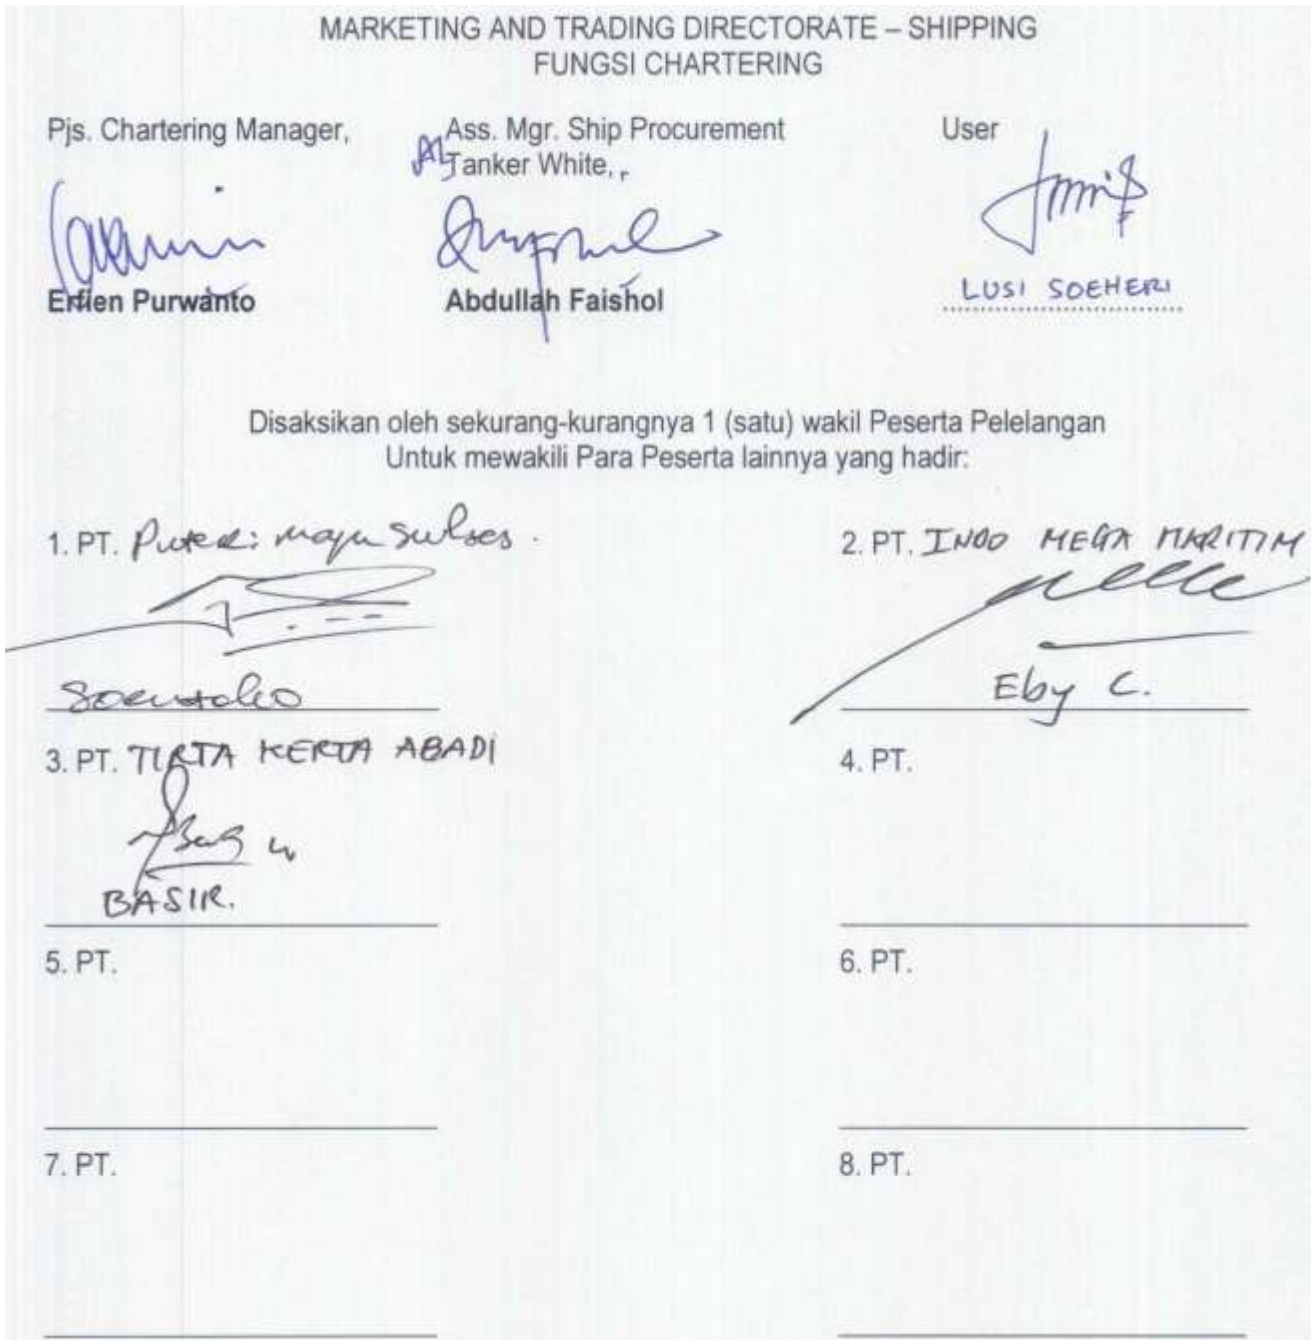 MARKETING AND TRADING DIRECTORATE – SHIPPING
FUNGSI CHARTERING
Pjs. Chartering Manager,
Ass. Mgr. Ship Procurement
Tanker White,
User
Erfien Purwanto
Abdullah Faishol
LUSI SOEHERI
Disaksikan oleh sekurang-kurangnya 1 (satu) wakil Peserta Pelelangan
Untuk mewakili Para Peserta lainnya yang hadir:
1. PT. Puteri maju Sukses.
2. PT. INDO MEGA MARITIM
Eby C.
3. PT. TIRTA KERTA ABADI
BASIR.
4. PT.
5. PT.
6. PT.
7. PT.
8. PT.